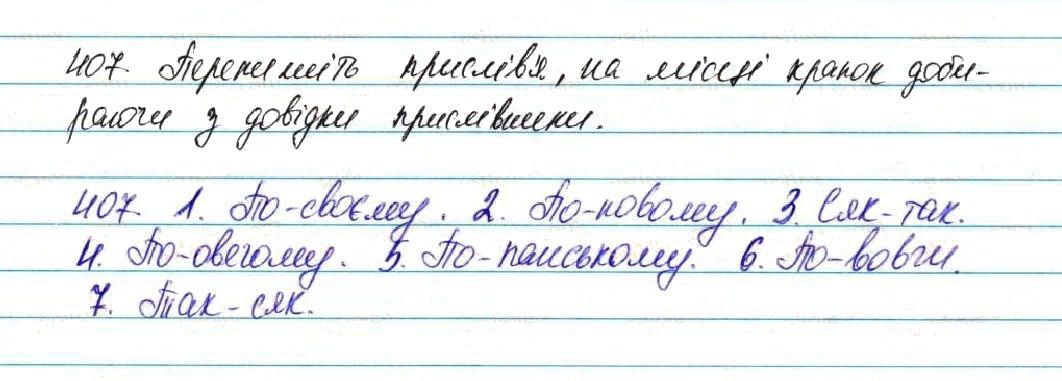 407. Перепишіть прислів'я, на місці крапок доби-
раючи з довідки прислівники.
407. 1. По-своєму. 2. По-новому. 3. Сяк-так.
4. По-овечому. 5. По-панському. 6. По-вовчи.
7. Так-сяк.